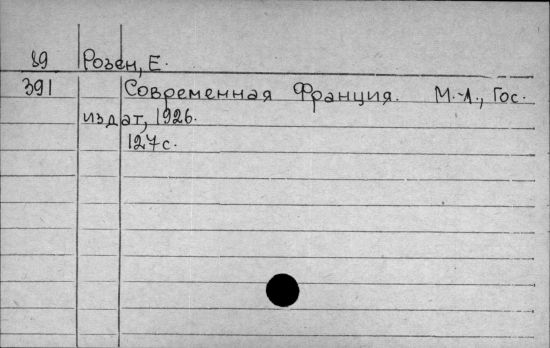 89 Розен, Е.
391 Современная Франция. М.-Л., Гос.
издат, 1926.
127 с.